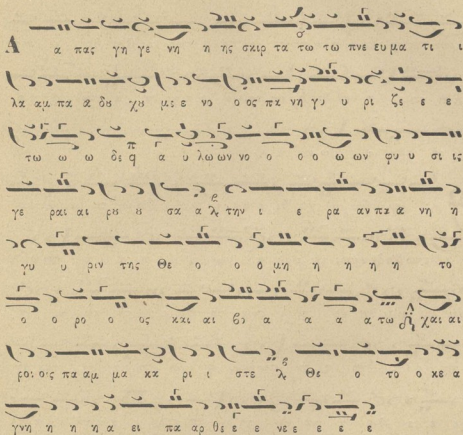 Α α πας γη γε νη η ης σκιρ τα τω τω πνε ευ μα τι ι
λα αμ πα α δȣ χȣ με ε νο ο ος πα νη γυ υ ρι ζε ε ε
τω ω ω δε α υ λω ων νο ο ο ο ω ων φυ υ σι ις
γε ραι αι ρȣ ȣ σα α την ι ε ρα αν πα α νη η
γυ υ ριν της Θε ο ο ο μη η η η η το
ο ο ρο ο ος και αι βο α α α α τω χαι αι
ροι οις πα αμ μα κα ρι ι στε Θε ο το ο κε α
γνη η η η α ει πα αρ θε ε ε νε ε ε ε ε